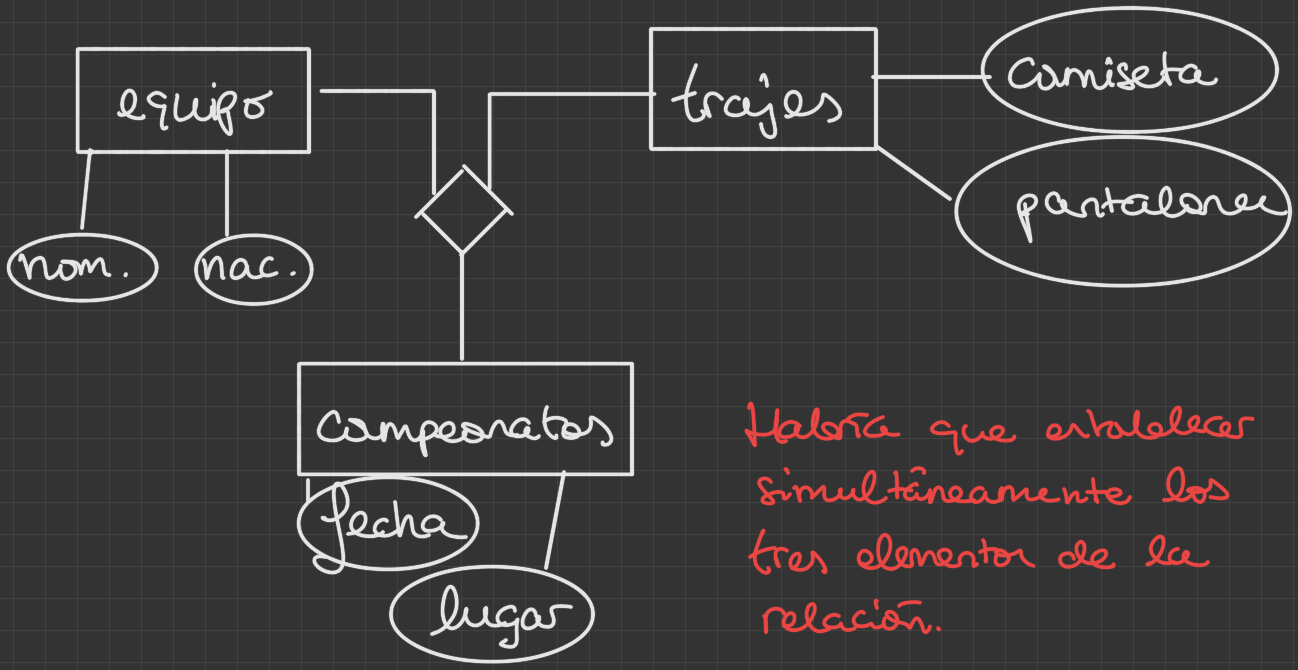 equipo
trajes
camiseta
pantalones
nom.
nac.
campeonatos
fecha
lugar
Habría que establecer
simultáneamente los
tres elementos de la
relación.